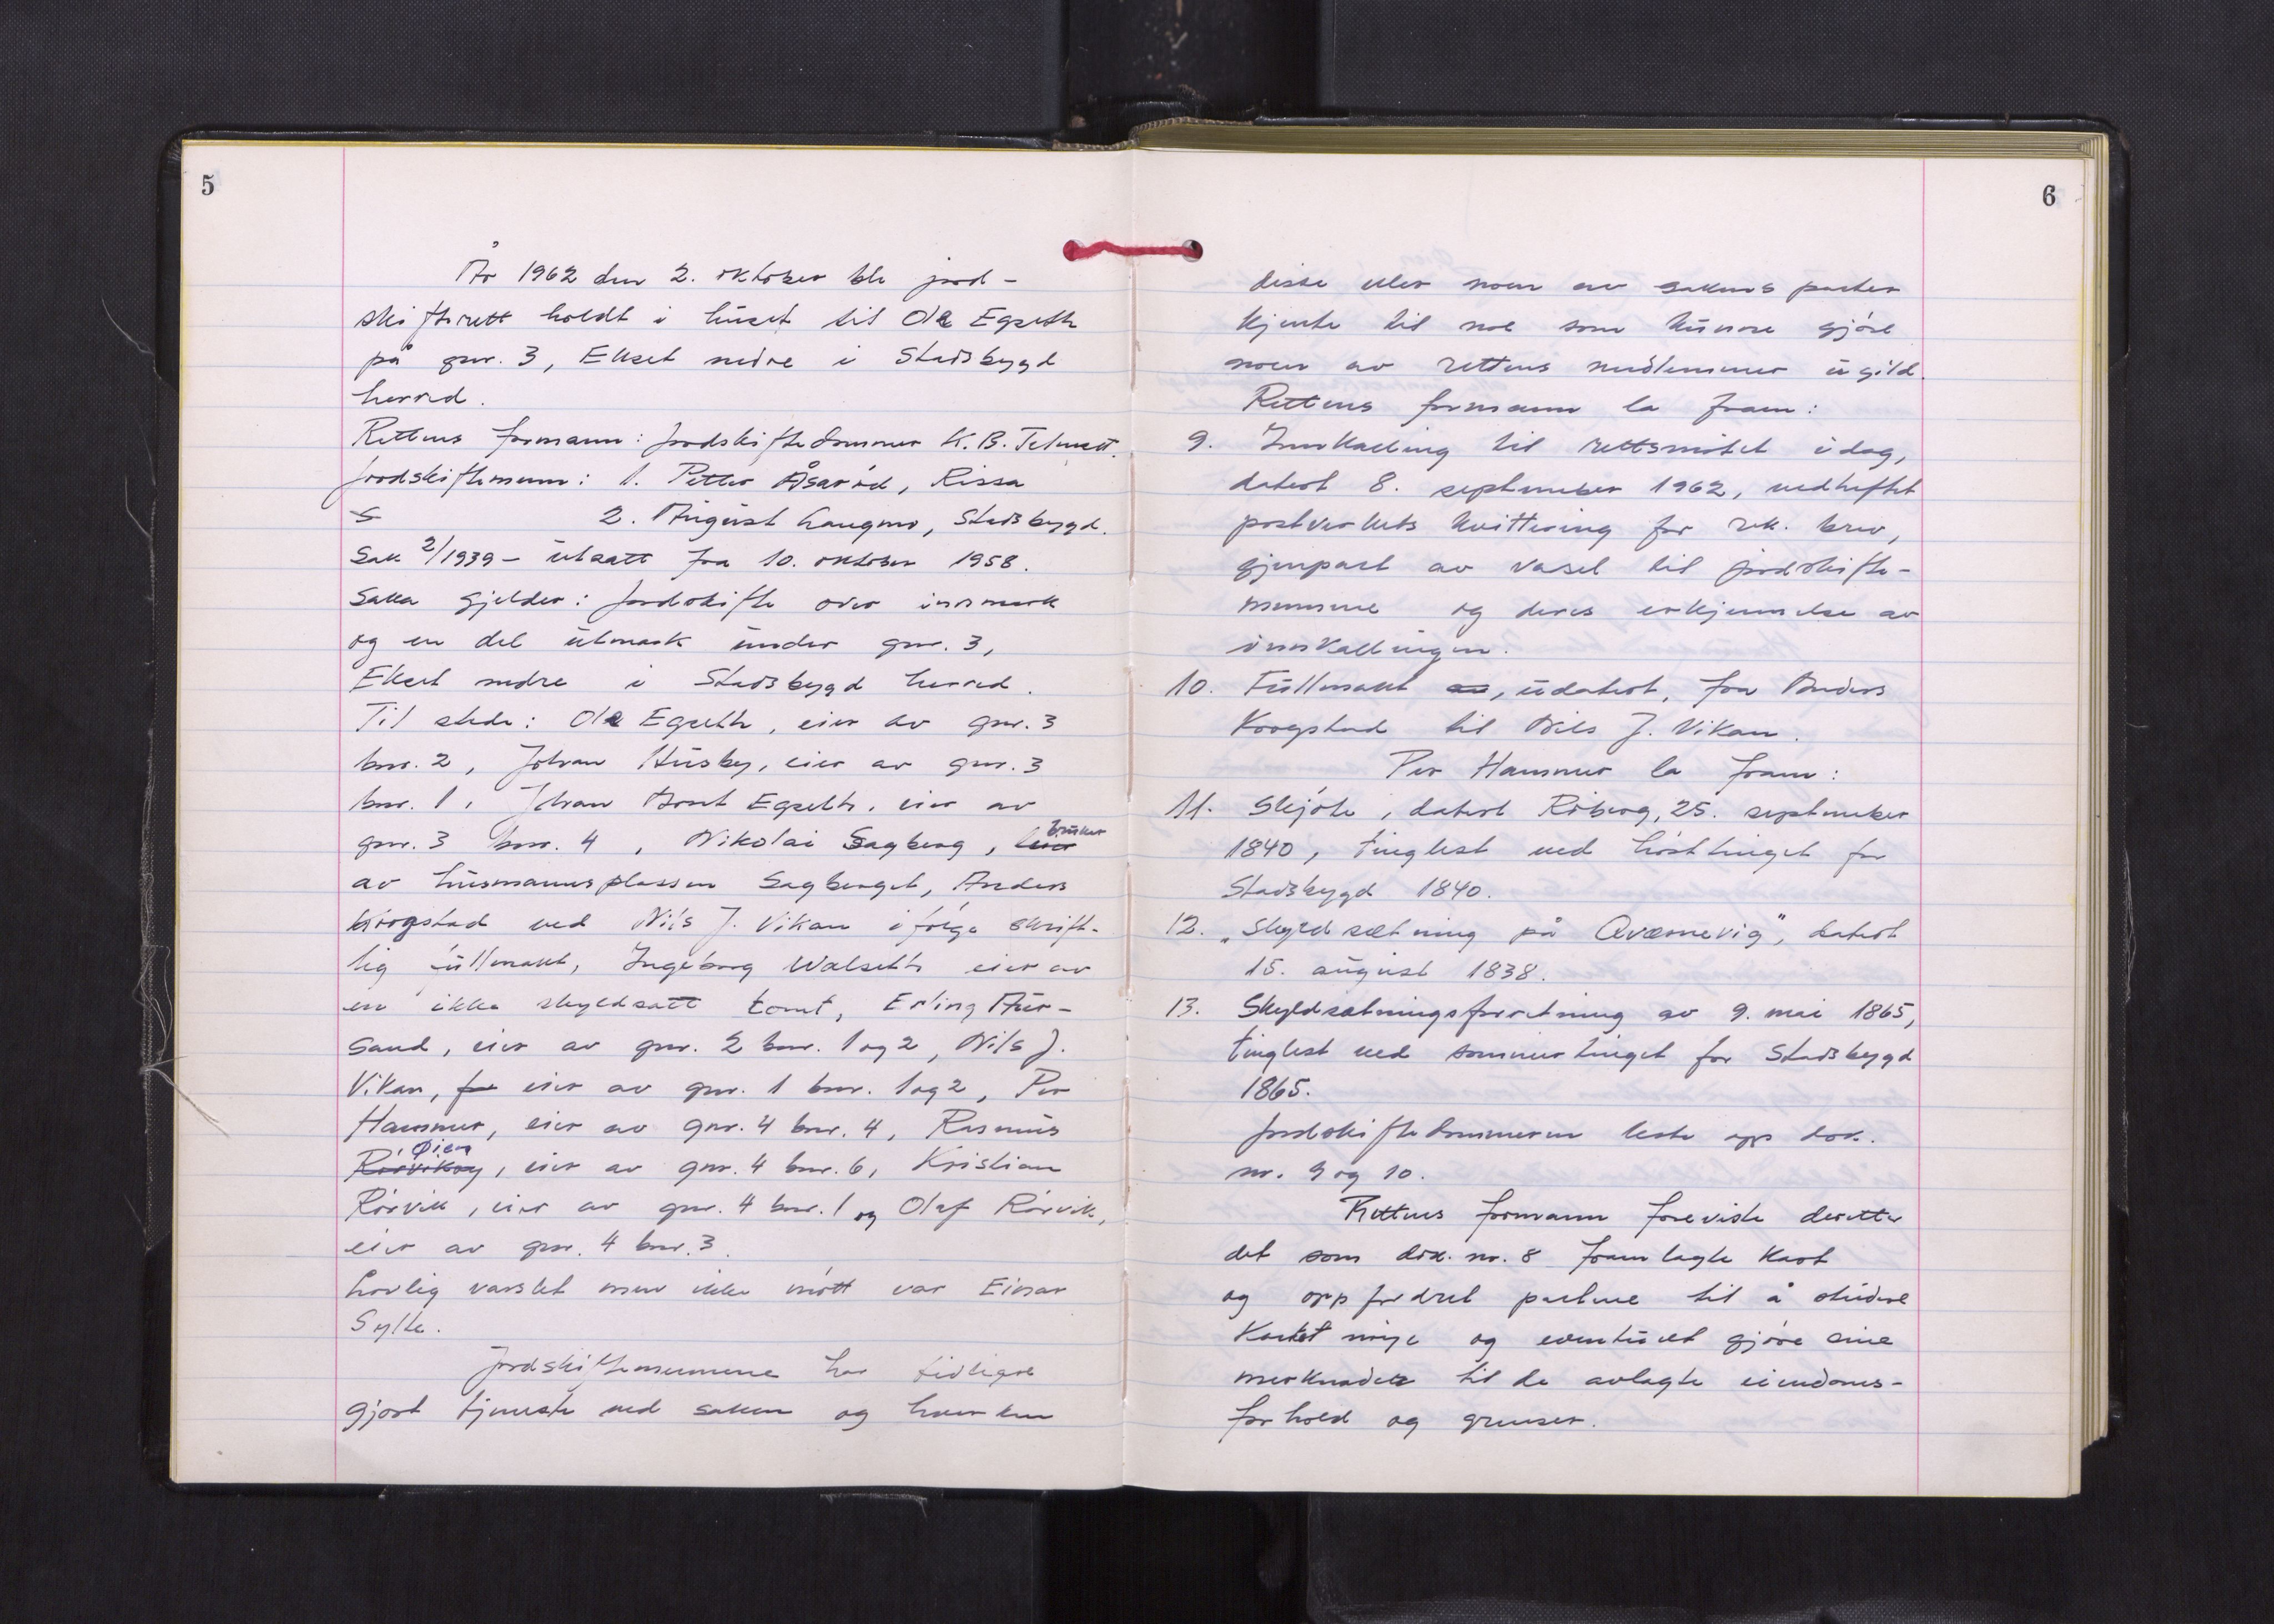 5
År 1962 den 2. oktober ble jord-
skifterett holdt i huset til Ole Egseth
på gnr. 3, Ekset nedre i Stadsbygd
herred.
Rettens formann: Jordskiftedommer K. B. Telnett.
Jordskiftemenn: 1. Petter Åsarød, Rissa
2. August Haugmo, Stadsbygd.
Sak 2/1939 - utsatt fra 10. oktober 1958.
Saka gjelder: Jordskifte over innmark
og en del utmark under gnr. 3,
Ekset nedre i Stadsbygd herred.
Til stede: Ole Egseth, eier av gnr. 3
bnr. 2, Johan Husby, eier av gnr. 3
bnr. 1, Johan Arnt Egseth, eier av
gnr. 3 bnr. 4, Nikolai Sagberg, bruker
av husmannsplassen Sagberget, Anders
Krogstad ved Nils J. Vikan ifølge skrift-
lig fullmakt, Ingeborg Walseth eier av
en ikke skyldsatt tomt, Erling Aur-
sand, eier av gnr. 2 bnr. 1 og 2, Nils J.
Vikan, eier av gnr. 1 bnr. 1 og 2, Per
Hammer, eier av gnr. 4 bnr. 4, Rasmus
Øien, eier av gnr. 4 bnr. 6, Kristian
Rørvik, eier av gnr. 4 bnr. 1 og Olaf Rørvik,
eier av gnr. 4 bnr. 3.
Lovlig varslet men ikke møtt var Einar
Sylte.
Jordskiftemennene har tidligere
gjort tjeneste ved saken og hverken
6
disse eller noen av sakens parter
kjente til noe som kunne gjøre
noen av rettens medlemmer ugild.
Rettens formann la fram:
9. Innkalling til rettsmøtet idag,
datert 8. september 1962, vedheftet
postverkets kvittering for rek. brev,
gjenpart av varsel til jordskifte-
mennene og deres erkjennelse av
innkallingen.
10. Fullmakt, udatert, fra Anders
Krogstad til Nils J. Vikan.
Per Hammer la fram:
11. Skjøte, datert Røberg, 25. september
1840, tinglest ved høsttinget for
Stadsbygd 1840.
12. „Skyldsætning på Qværnevig", datert
15. august 1838.
13. Skyldsætningsforretning av 9. mai 1865,
tinglest ved sommertinget for Stadsbygd
1865.
Jordskiftedommeren leste opp dok.
nr. 9 og 10.
Rettens formann foreviste deretter
det som dok. nr. 8 framlagte kart
og oppfordret partene til å studere
kartet nøye og eventuelt gjøre sine
merknader til de avlagte eiendoms-
forhold og grenser.